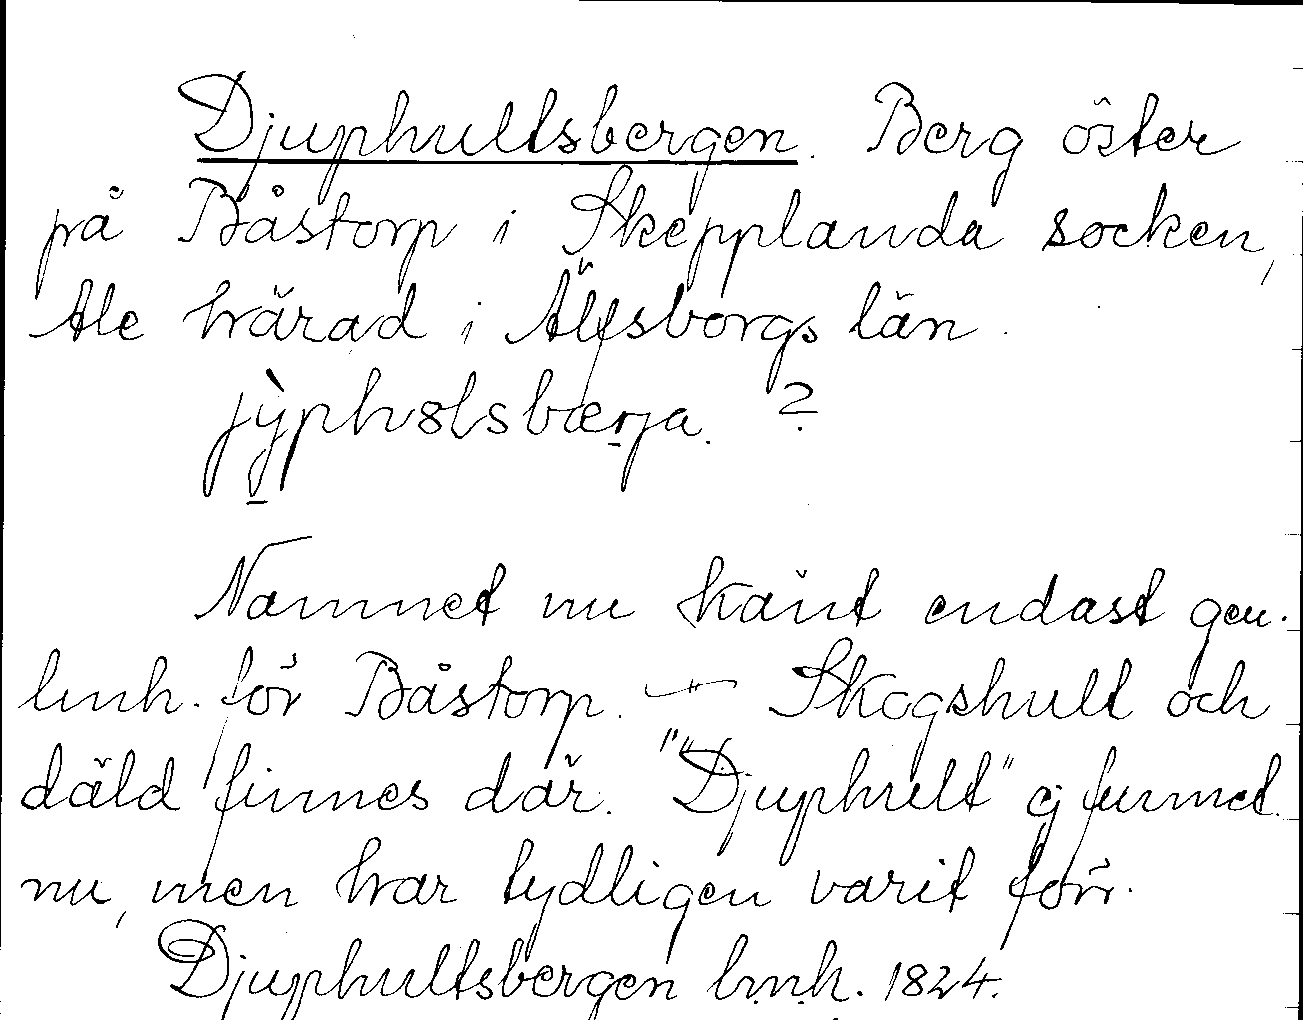 Djuphultsbergen. Berg öster
på Båstorp i Skepplanda socken,
Ale härad i Älfsborgs län.
jỳphɷlsbærja. ?
Namnet nu känt endast gen.
lmh. för Båstorp. — Skogshult och
däld finnes där. "Djuphult" ej funnet
nu, men har tydligen varit förr.
Djuphultsbergen lmh. 1824.